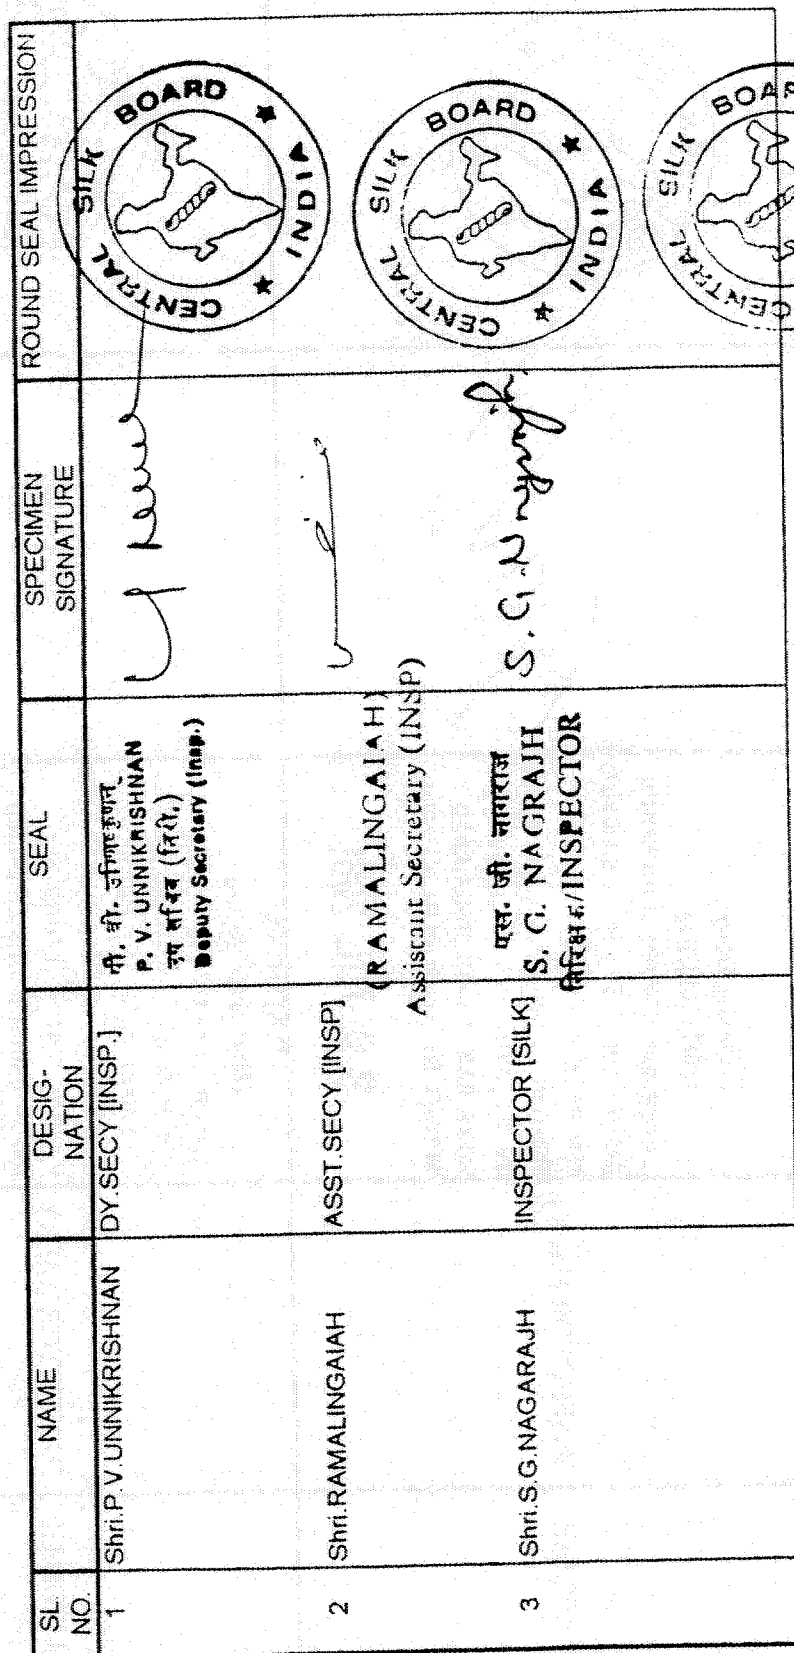 SL NO. NAME DESIG-NATION SEAL SPECIMEN SIGNATURE ROUND SEAL IMPRESSION
1 Shri.P.V.UNNIKRISHNAN DY.SECY [INSP.]
P. V. UNNIKRISHNAN
Deputy Secretary (Insp.)
CENTRAL SILK BOARD ★ INDIA ★
2 Shri.RAMALINGAIAH ASST.SECY [INSP]
(RAMALINGAIAH)
Assistant Secretary (INSP)
CENTRAL SILK BOARD ★ INDIA ★
3 Shri.S.G.NAGARAJH INSPECTOR [SILK]
एस. जी. नागराज
S. G. NAGRAJH
/INSPECTOR
S. G. N
CENTRAL SILK BOAR